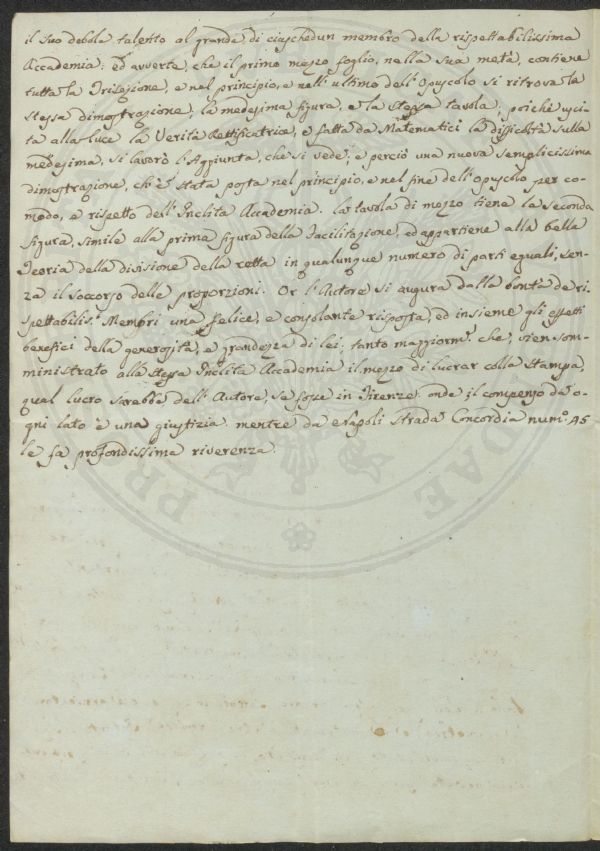 il suo debole talento al grande di ciaschedun membro della rispettabilissima
Accademia: ed avverte, che il primo mezzo foglio, nella sua metà, contiene
tutta la Trisezione, e nel principio, e nell'ultimo dell'Opuscolo si ritrova la
stessa dimostrazione, la medesima figura, e la stessa tavola; poichè usci-
ta alla luce la Verità Rettificatrice, e fatta da Matematici la difficoltà sulla
medesima, si lavorò l'Aggiunta, che si vede, e perciò una nuova semplicissima
dimostrazione, ch'è stata posta nel principio, e nel fine dell'Opuscolo per co-
modo, e rispetto dell'Inclita Accademia. La tavola di mezzo tiene la seconda
figura, simile alla prima figura della Facilitazione, ed appartiene alla bella
Teoria della divisione della retta in qualunque numero di parti eguali, sen-
za il soccorso delle proporzioni. Or l'Autore si augura dalla bontà de' ri-
spettabilis.i Membri una felice, e consolante risposta, ed insieme gli effetti
benefici della generosità, e grandezza di lei, tanto maggiorm.e che, vien som-
ministrato alla stessa Inclita Accademia il mezzo di lucrar colla stampa,
qual lucro sarebbe dell'Autore, se fosse in Firenze: onde il compenso da o-
gni lato è una giustizia. mentre da Napoli Strada Concordia num.o 45
le fa profondissima riverenza.
PR
DAE